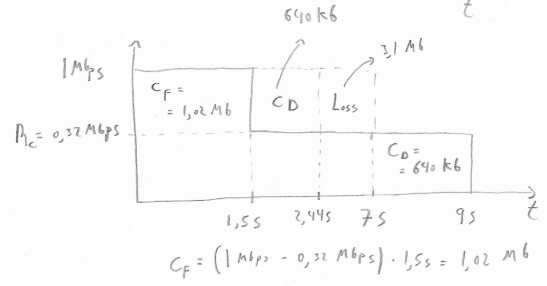 t
640 kb
3,1 Mb
1 Mbps
C_F =
= 1,02 Mb
C_D
Loss
R_c = 0,32 Mbps
C_D =
= 640 kb
1,5 s
2,44 s
7 s
9 s
t
C_F = (1 Mbps - 0,32 Mbps) · 1,5 s = 1,02 Mb